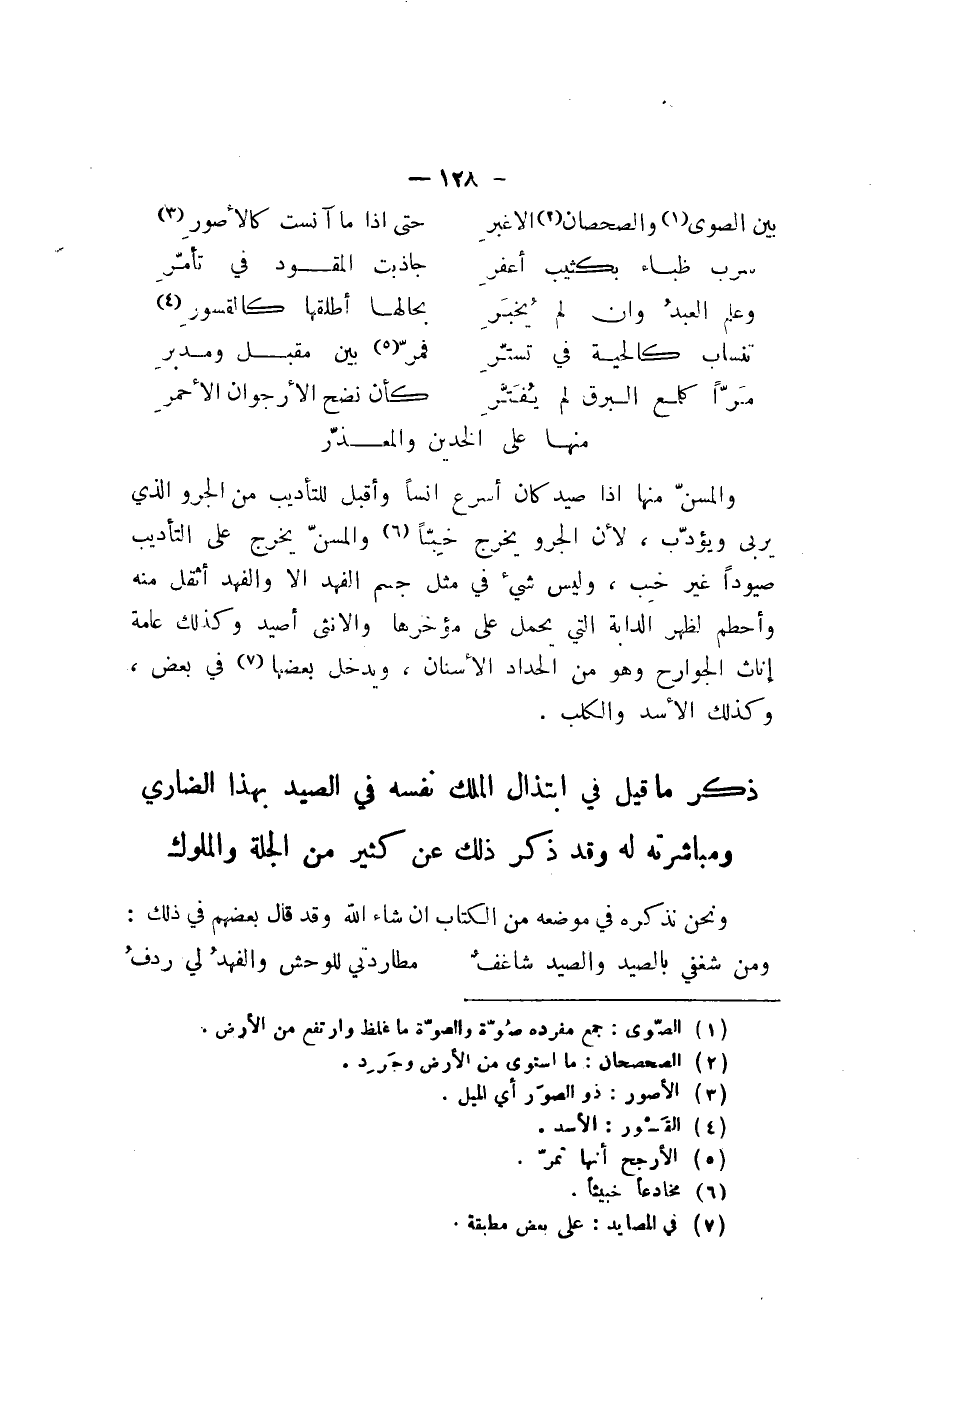 - ١٢٨ -
بين الصوى(١) والصحصان(٢) الاغبرِ حتى اذا ما آنست كالأصورِ(٣)
سرب ظباء بكثيب أعفرِ جاذبت المقود في تأمّرِ
وعلم العبدُ وان لم يُخبَرِ بحالها أطلقها كالقسورِ(٤)
تنساب كالحية في تستّرِ فمرّ(٥) بين مقبل ومدبرِ
مَرّاً كلمع البرق لم يُفَتَّرِ كأن نضح الأرجوان الأحمرِ
منها على الخدين والمعذّرِ
والمسنّ منها اذا صيد كان أسرع انساً وأقبل للتأديب من الجرو الذي
يربى ويؤدّب ، لأن الجرو يخرج خَبّاً(٦) والمسنّ يخرج على التأديب
صيوداً غير خب ، وليس شيء في مثل جسم الفهد الا والفهد أثقل منه
وأحطم لظهر الدابة التي يحمل على مؤخرها والانثى أصيد وكذلك عامة
إناث الجوارح وهو من الحداد الأسنان ، ويدخل بعضها(٧) في بعض ،
وكذلك الأسد والكلب .
ذكر ما قيل في ابتذال الملك نفسه في الصيد بهذا الضاري
ومباشرته له وقد ذكر ذلك عن كثير من الجلة والملوك
ونحن نذكره في موضعه من الكتاب ان شاء الله وقد قال بعضهم في ذلك :
ومن شغفي بالصيد والصيد شاغفُ مطاردتي للوحش والفهدُ لي ردفُ
(١) الصّوى : جمع مفرده صُوّة والصوّة ما غلظ وارتفع من الأرض .
(٢) الصحصحان : ما استوى من الأرض وجَرِد .
(٣) الأصور : ذو الصوَر أي الميل .
(٤) القَسْور : الأسد .
(٥) الأرجح أنها تمرّ .
(٦) مخادعاً خبيثاً .
(٧) في المصايد : على بعض مطبقة .